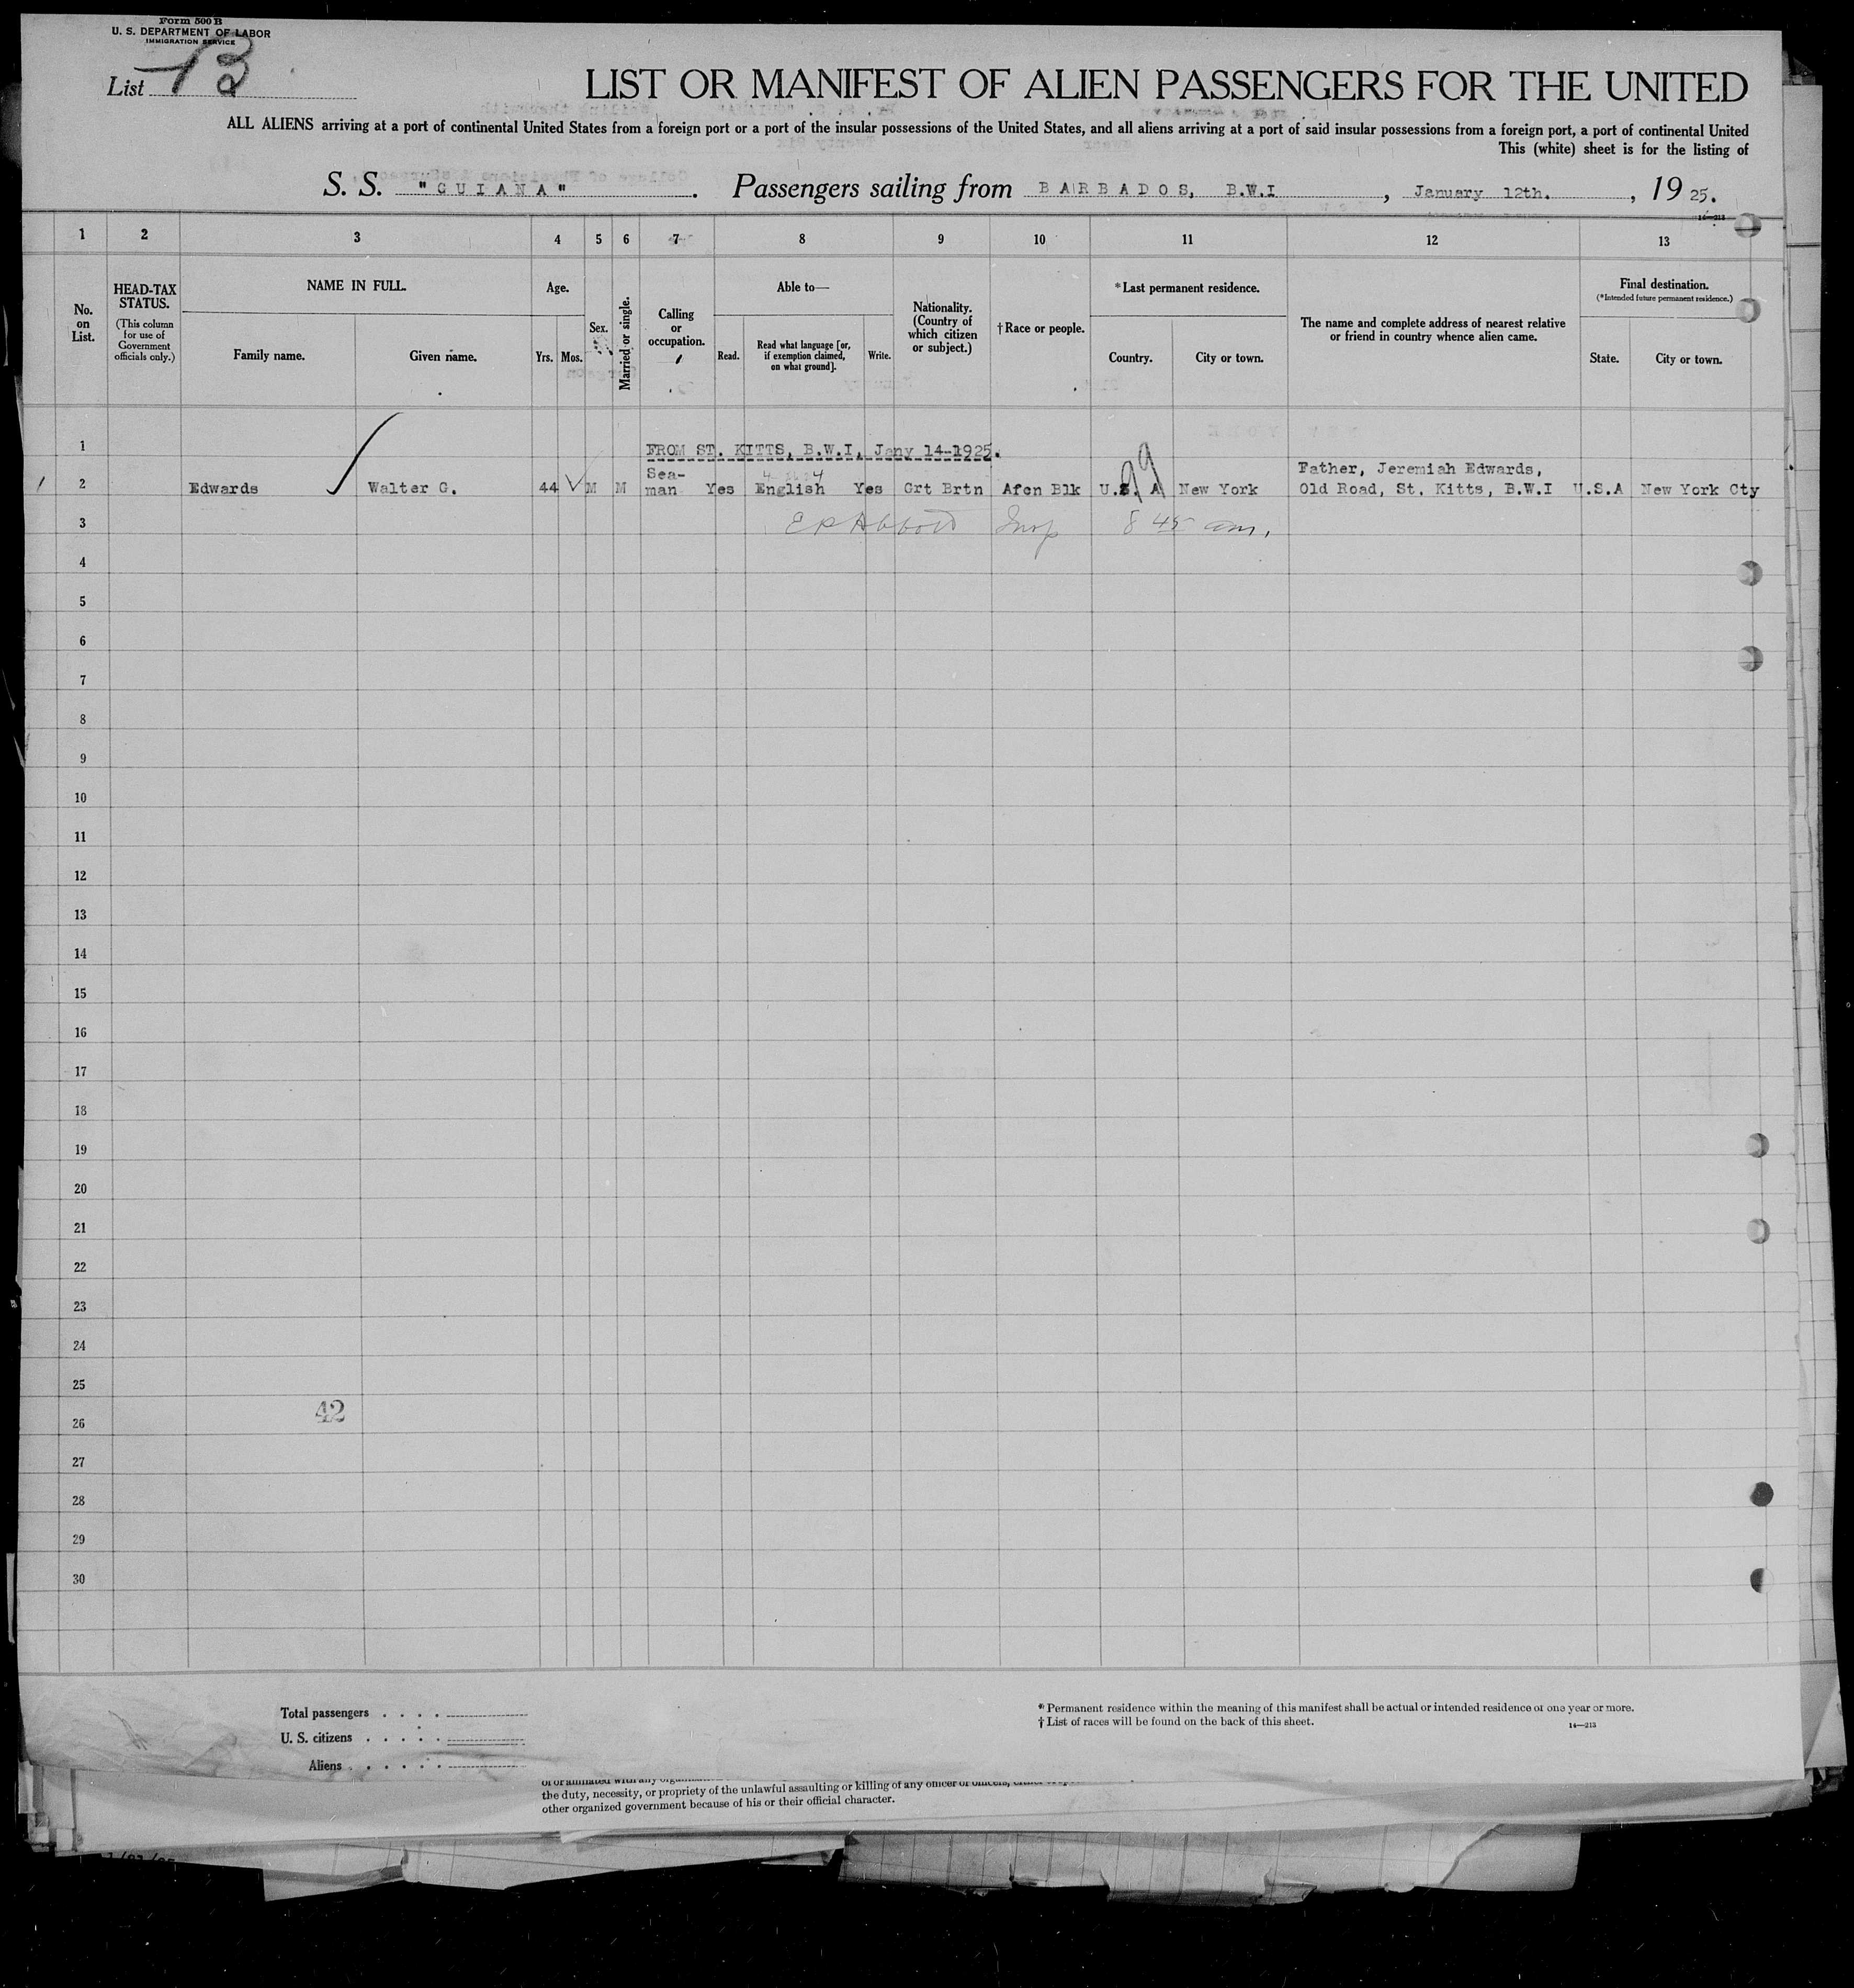 Form 500 B
U. S. DEPARTMENT OF LABOR
IMMIGRATION SERVICE
List 13
LIST OR MANIFEST OF ALIEN PASSENGERS FOR THE UNITED
ALL ALIENS arriving at a port of continental United States from a foreign port or a port of the insular possessions of the United States, and all aliens arriving at a port of said insular possessions from a foreign port, a port of continental United
This (white) sheet is for the listing of
S. S. "GUIANA". Passengers sailing from BARBADOS, B.W.I, January 12th., 1925.
14—213
1 2 3 4 5 6 7 8 9 10 11 12 13
No. on List.
HEAD-TAX STATUS.
(This column for use of Government officials only.)
NAME IN FULL.
Family name.
Given name.
Age.
Yrs. Mos.
Sex.
Married or single.
Calling or occupation.
Able to—
Read.
Read what language [or, if exemption claimed, on what ground].
Write.
Nationality. (Country of which citizen or subject.)
†Race or people.
*Last permanent residence.
Country.
City or town.
The name and complete address of nearest relative or friend in country whence alien came.
Final destination.
(*Intended future permanent residence.)
State.
City or town.
1 FROM ST. KITTS, B.W.I, Jany 14-1925.
1 2 Edwards Walter G. 44 M M Sea-man Yes English Yes Grt Brtn Afcn Blk U.S. A New York Father, Jeremiah Edwards, Old Road, St. Kitts, B.W.I U.S.A New York Cty
99
3 E R Abbott Insp 8 45 am.
4
5
6
7
8
9
10
11
12
13
14
15
16
17
18
19
20
21
22
23
24
25
42
26
27
28
29
30
Total passengers . . . .
U. S. citizens . . . . .
Aliens . . . . . .
* Permanent residence within the meaning of this manifest shall be actual or intended residence of one year or more.
† List of races will be found on the back of this sheet.
14—213
the duty, necessity, or propriety of the unlawful assaulting or killing of any officer or officers,
other organized government because of his or their official character.